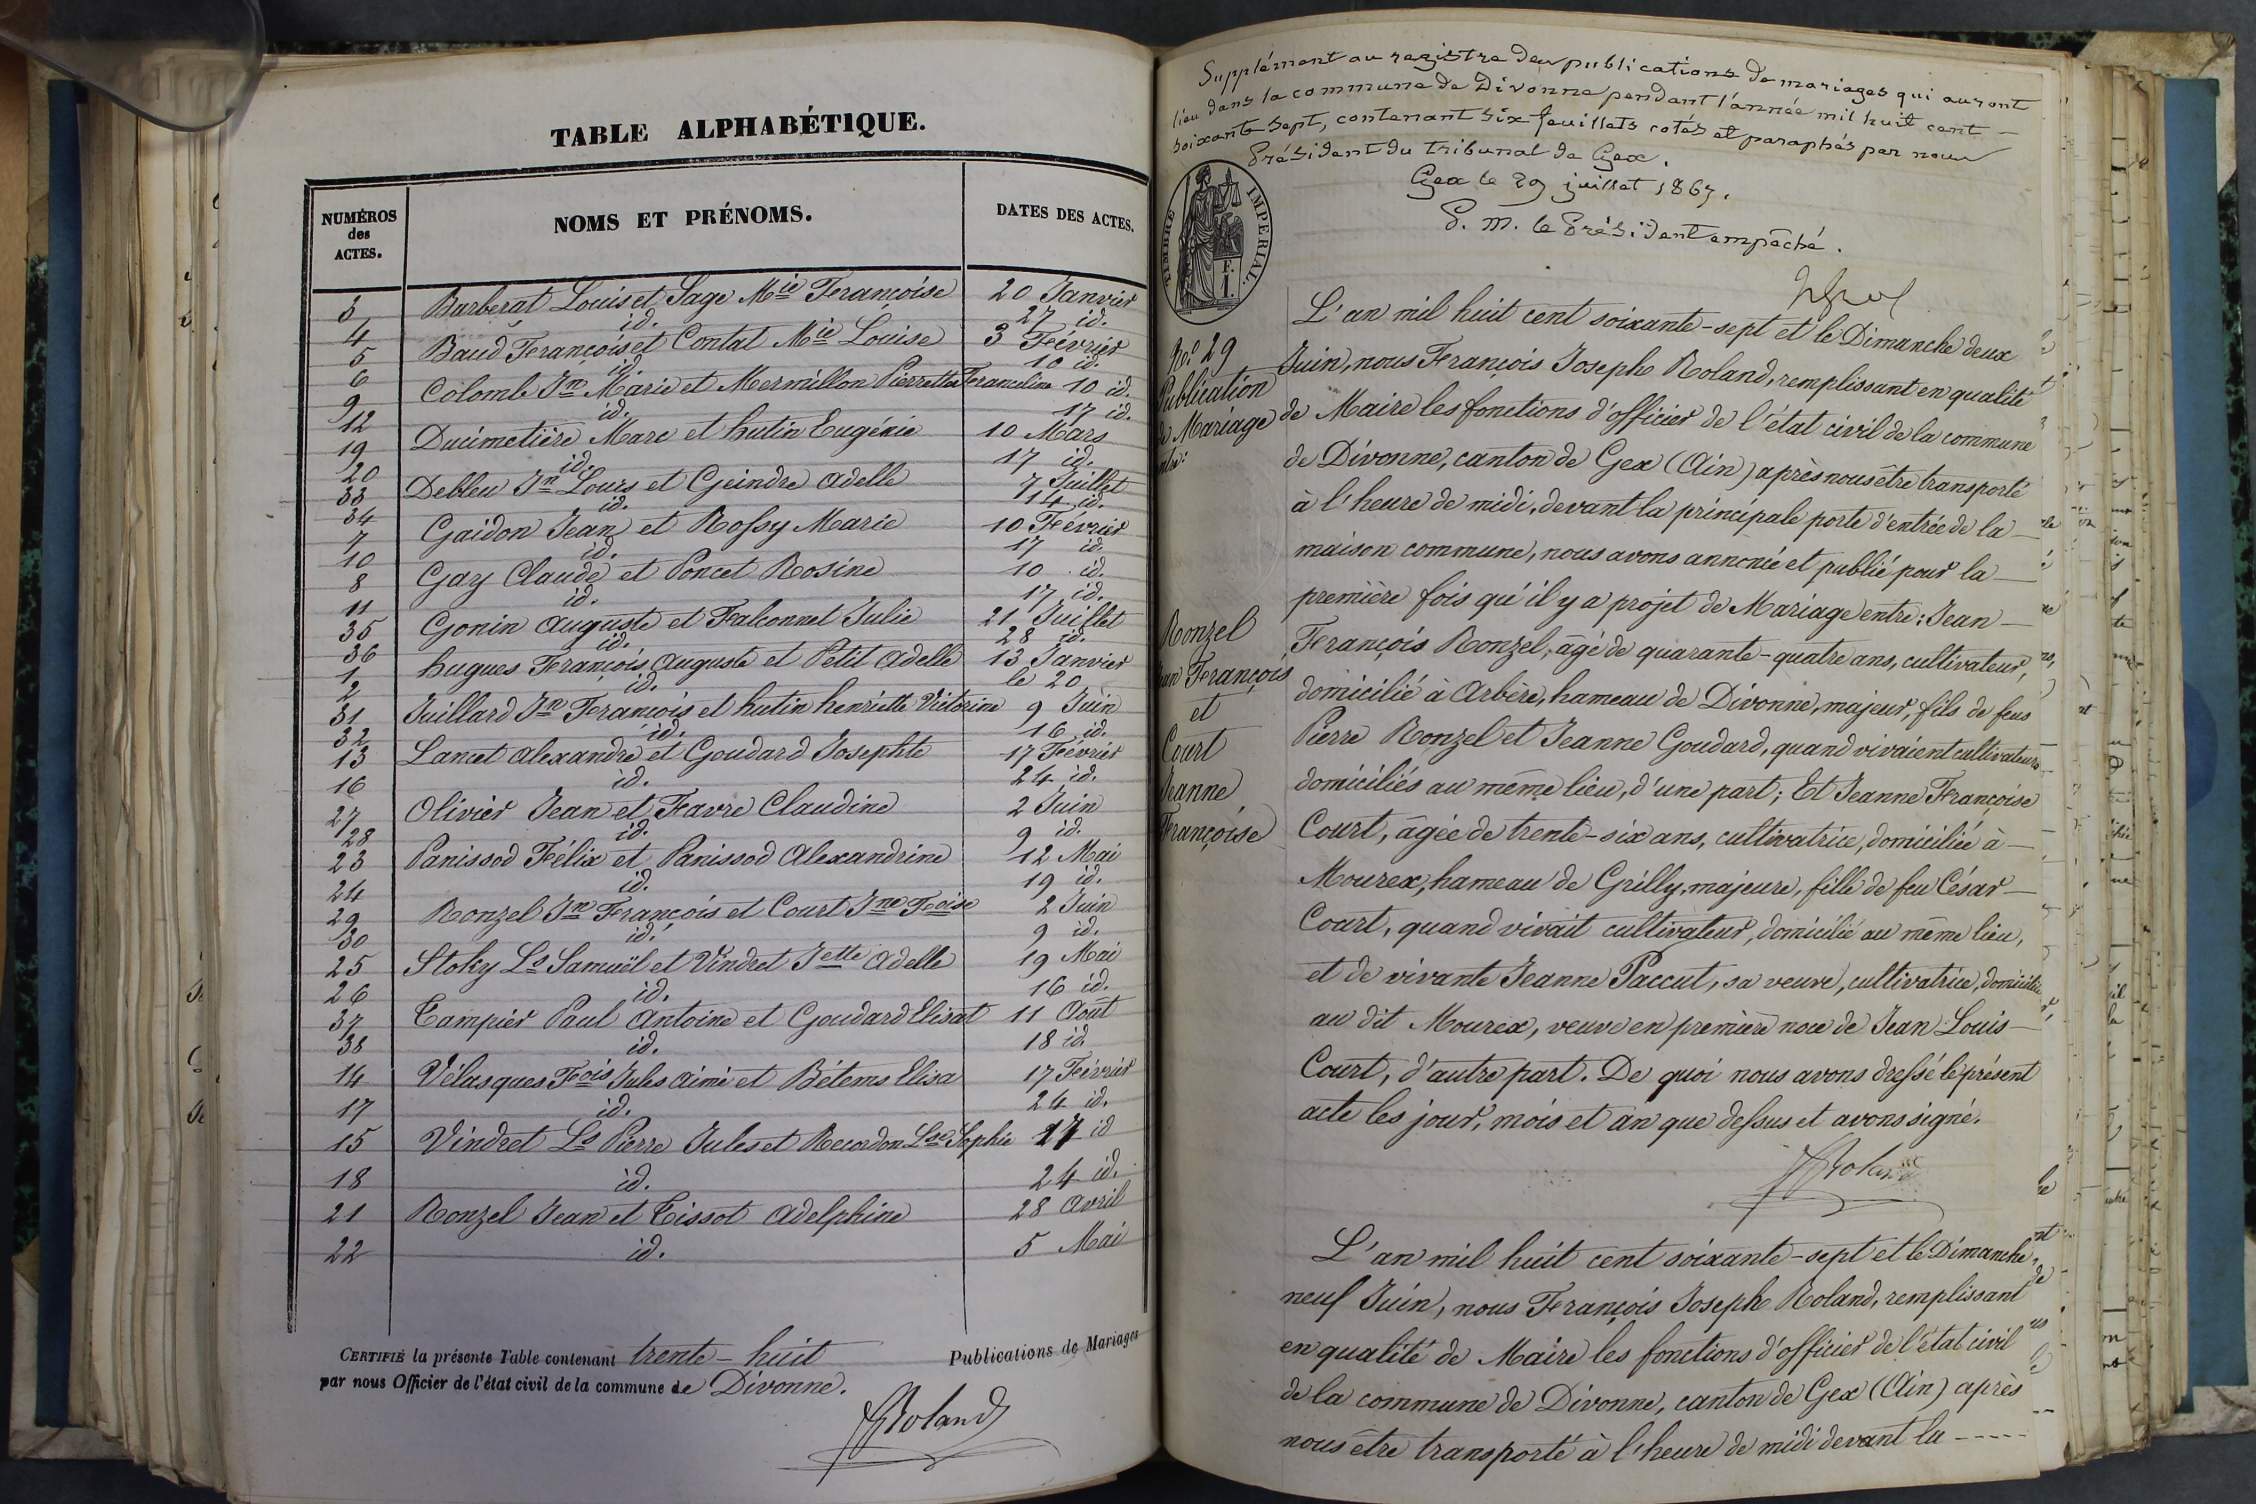 TABLE ALPHABÉTIQUE.
NUMÉROS
des
ACTES.
NOMS ET PRÉNOMS.
DATES DES ACTES.
3 Barberat Louis et Sage Mie Françoise 20 Janvier
4 id. 27 id.
5 Baud François et Contat Mie Louise 3 Février
6 id. 10 id.
9 Colomb Jn Marie et Mermillon Pierrette Francoline 10 id.
12 id. 17 id.
19 Ducimetière Marc et hutin Eugénie 10 Mars
20 id. 17 id.
33 Debleu Jn Louis et Geindre Adelle 7 Juillet
34 id. 14 id.
7 Gaidon Jean et Rossy Marie 10 Février
10 id. 17 id.
8 Gay Claude et Poncet Rosine 10 id.
11 id. 17 id.
35 Gonin Auguste et Falconnet Julie 21 Juillet
36 id. 28 id.
1 hugues François Auguste et Petit Adelle 13 Janvier
2 id. le 20
31 Juillard Jn François et hutin henriette Victorine 9 Juin
32 id. 16 id.
13 Lancet Alexandre et Goudard Josephte 17 Février
16 id. 24 id.
27 Olivier Jean et Favre Claudine 2 Juin
28 id. 9 id.
23 Panissod Félix et Panissod Alexandrine 12 Mai
24 id. 19 id.
29 Ronzel Jn François et Court Jne Foise 2 Juin
30 id. 9 id.
25 Stoky Ls Samuël et Vindret Jette Adelle 19 Mai
26 id. 16 id.
37 Tampier Paul Antoine et Goudard Elisat 11 Août
38 id. 18 id.
14 Vélasques Fois Jules Aimé et Bétems Elisa 17 Février
17 id. 24 id.
15 Vindret Ls Pierre Jules et Recordon Lse Sophie 17 id
18 id. 24 id.
21 Ronzel Jean et Tissot Adelphine 28 Avril
22 id. 5 Mai
CERTIFIÉ la présente Table contenant trente-huit Publications de Mariages
par nous Officier de l'état civil de la commune de Divonne.
Roland
Supplément au registre des publications de mariages qui auront
lieu dans la commune de Divonne pendant l'année mil huit cent
soixante sept, contenant six feuillets cotés et paraphés par nous
Président du tribunal de Gex.
Gex le 29 juillet 1867.
P. M. le Président empêché.
TIMBRE IMPÉRIAL.
F.
1.
No. 29
Publication
de Mariage
entre:
Ronzel
Jean François
et
Court
Jeanne
Françoise
L'an mil huit cent soixante-sept et le Dimanche deux
Juin, nous François Joseph Roland, remplissant en qualité
de Maire les fonctions d'officier de l'état civil de la commune
de Divonne, canton de Gex (Ain) après nous être transporté
à l'heure de midi, devant la principale porte d'entrée de la
maison commune, nous avons annoncé et publié pour la
première fois qu'il y a projet de Mariage entre: Jean
François Ronzel, âgé de quarante-quatre ans, cultivateur,
domicilié à Arbère, hameau de Divonne, majeur, fils de feus
Pierre Ronzel et Jeanne Goudard, quand vivaient cultivateurs
domiciliés au même lieu, d'une part; Et Jeanne Françoise
Court, âgée de trente-six ans, cultivatrice, domiciliée à
Mourex, hameau de Grilly, majeure, fille de feu César
Court, quand vivait cultivateur, domicilié au même lieu,
et de vivante Jeanne Paccut, sa veuve, cultivatrice, domiciliée
au dit Mourex, veuve en première noce de Jean Louis
Court, d'autre part. De quoi nous avons dressé le présent
acte les jour, mois et an que dessus et avons signé.
Roland
L'an mil huit cent soixante-sept et le Dimanche
neuf Juin, nous François Joseph Roland, remplissant
en qualité de Maire les fonctions d'officier de l'état civil
de la commune de Divonne, canton de Gex (Ain) après
nous être transporté à l'heure de midi devant la